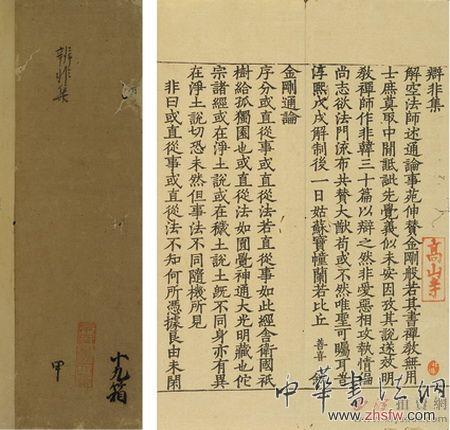 辯非集
解空法師述通論事苑伸贊金剛般若其書禪教無用
士庶莫取中間詆訿先覺義似未安因攷其說述放明
教禪師作非韓三十篇以辯之然非愛惡相攻執情偪
尚志欲法門流布共贊大猷苟或不然唯聖可矚耳普
淳熙戊戌解制後一日姑蘇寶幢蘭若比丘 善喜
金剛通論
序分或直從事或直從法若直從事如此經舍衛國祇
樹給孤獨園也或直從法如圓覺神通大光明藏也佗
宗諸經或在淨土說或在穢土說土旣不同身亦有異
在淨土說切恐未然但事法不同隨機所見
非曰或直從事或直從法不知何所憑據良由未閑
高山寺
辨非集
甲
十九箱
中华书法网
www.zhsfw.com